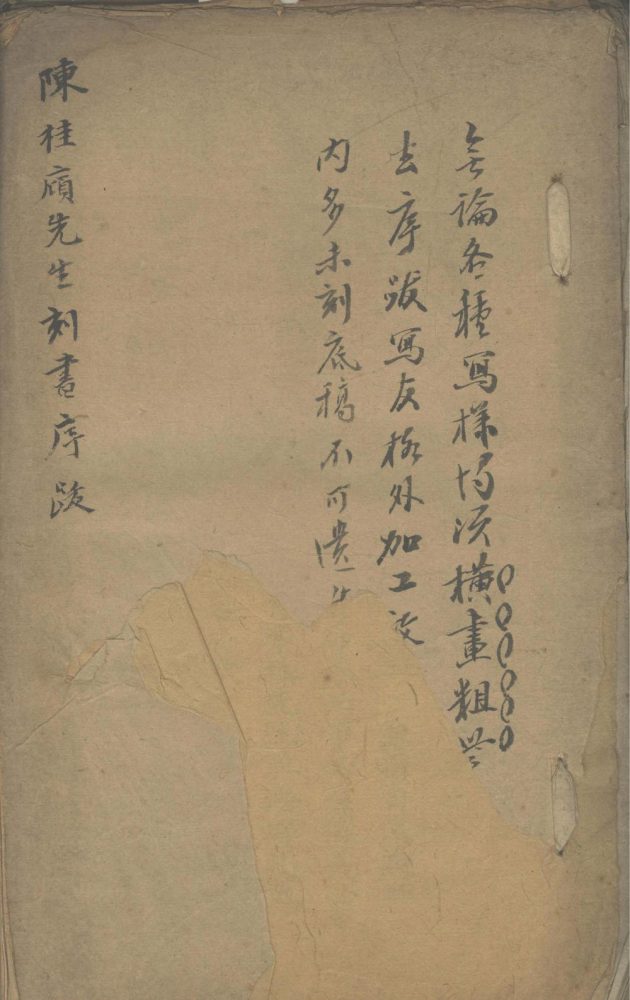 無論各種寫樣均須橫畫粗些
去序跋寫友格外加工
内多未刻底稿不可遺
陳桂廎先生刻書序跋